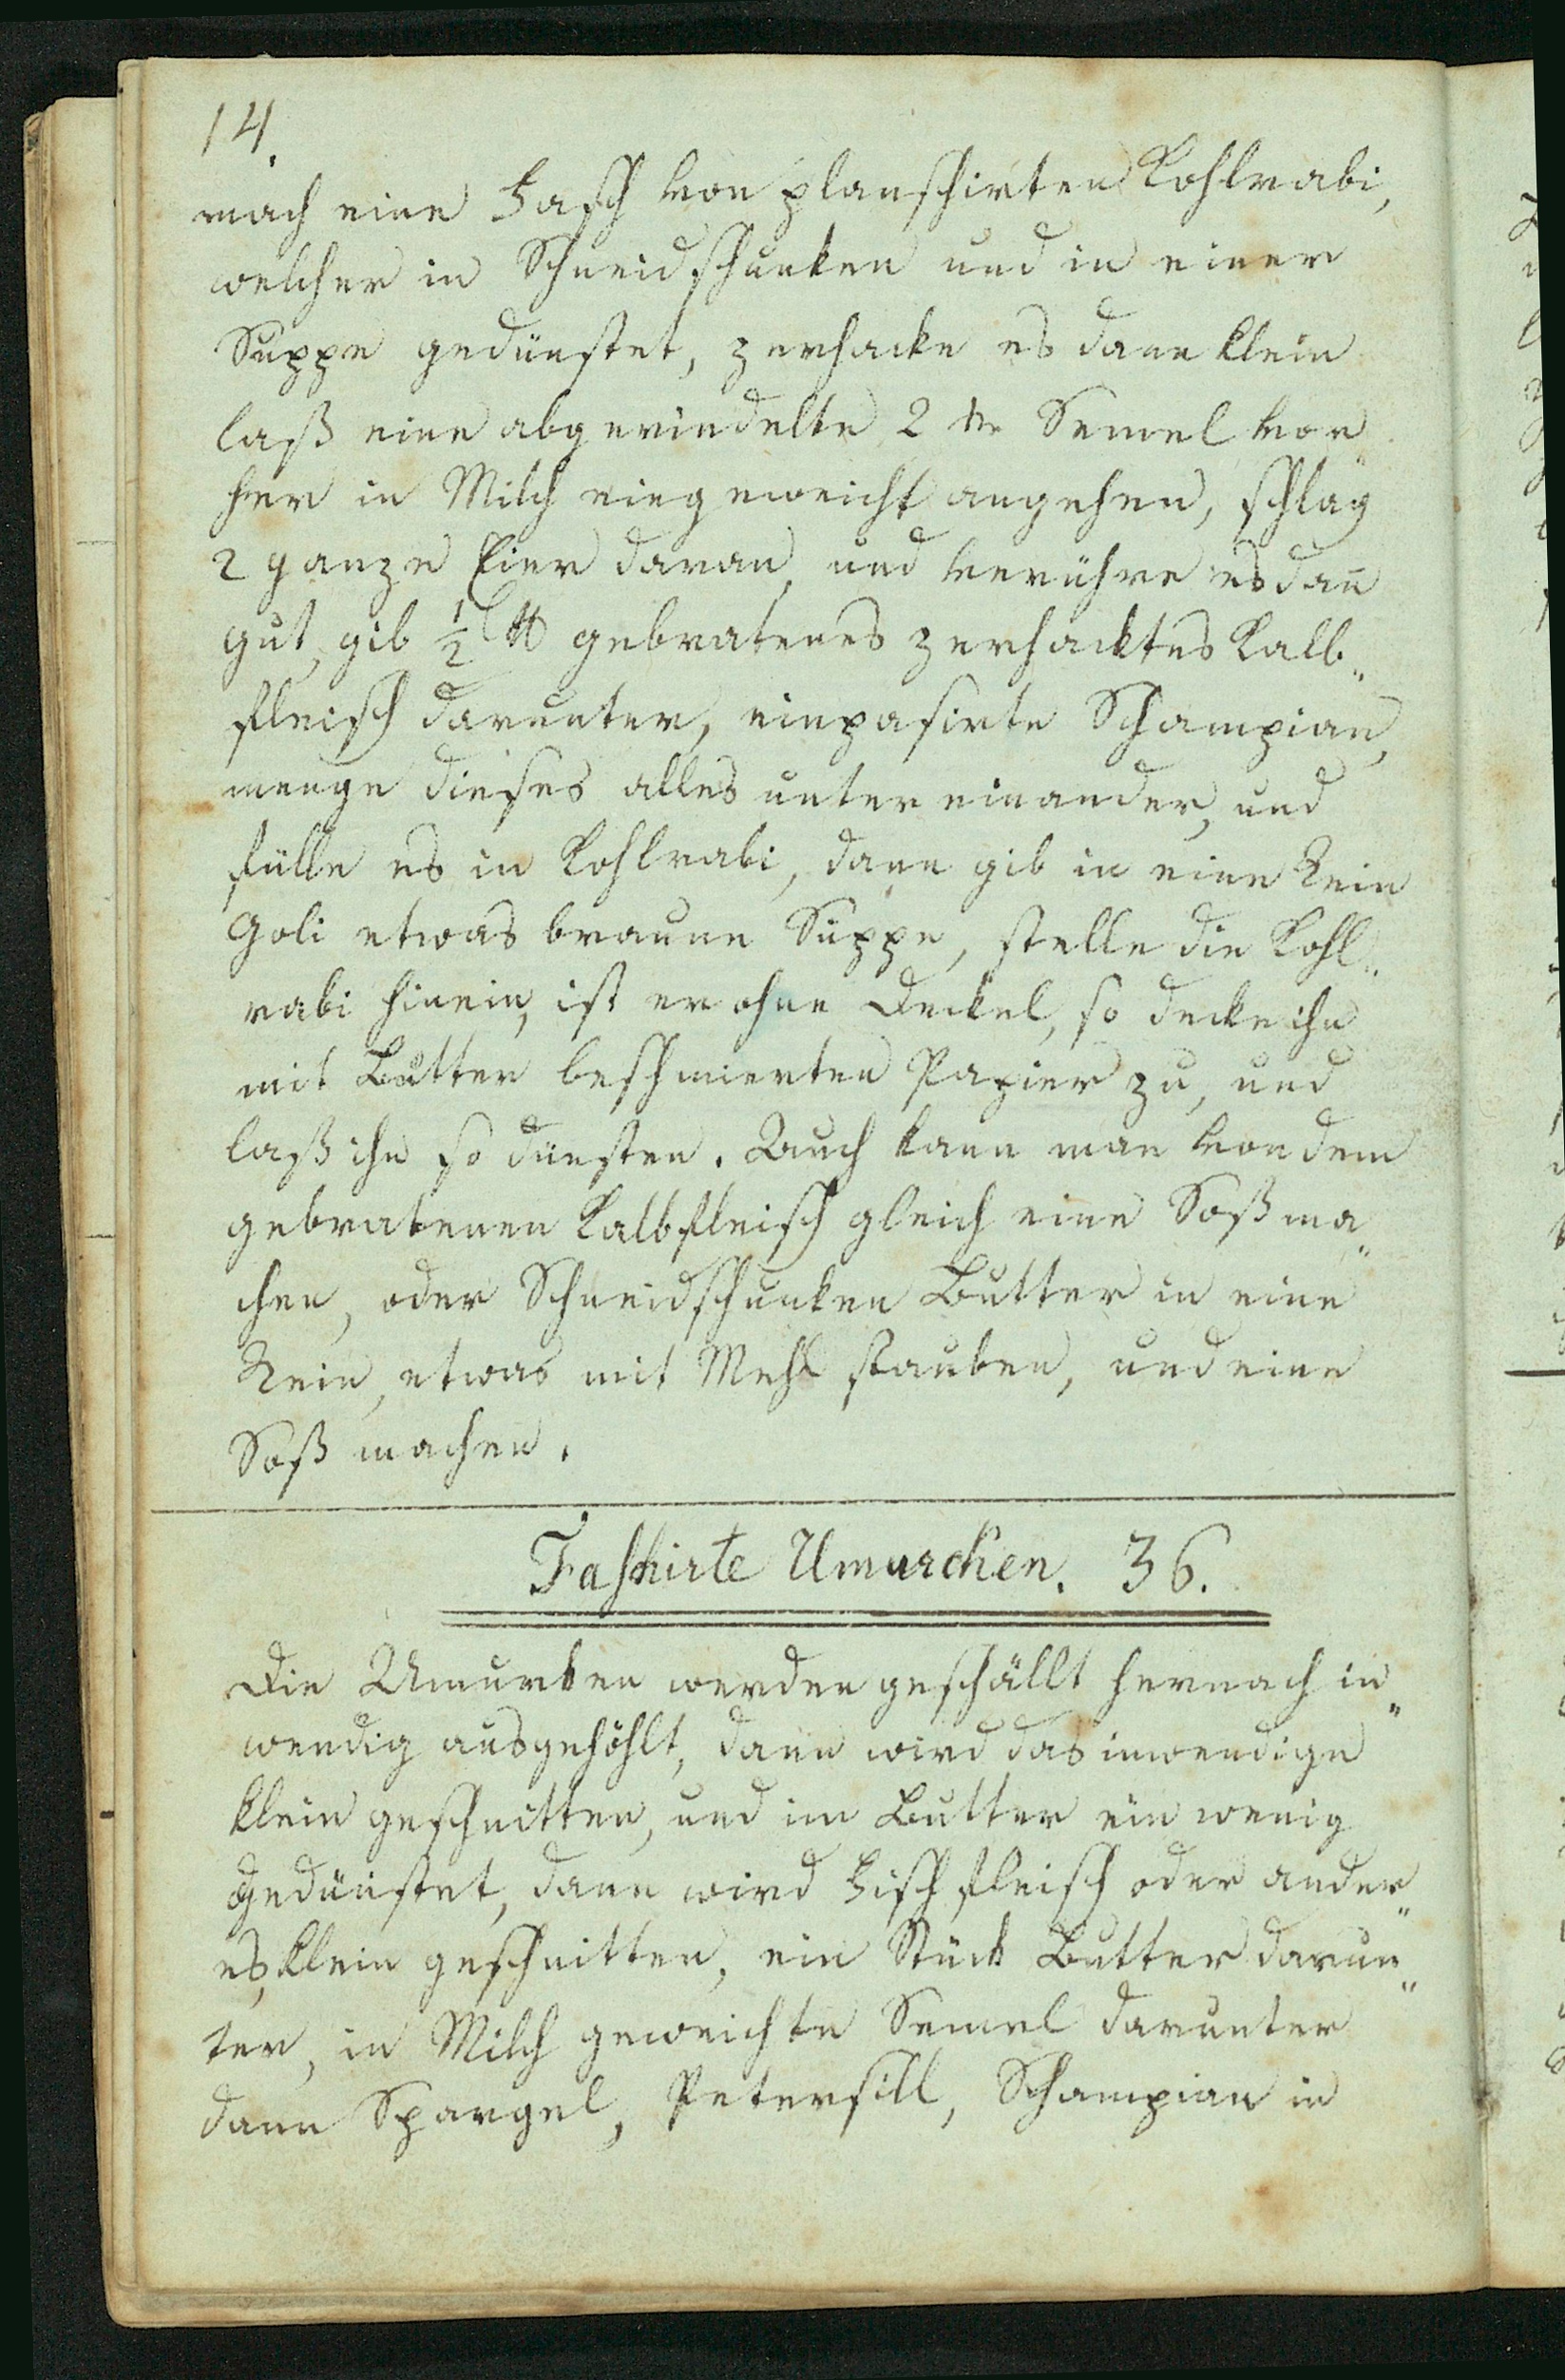 14.
mach eine Fasch von planschirten Kohlrabi,
welcher in Schneidschunken und in einer
Suppe gedünstet, zerhacke es dann klein
laß eine abgerindelte 2 xr Semel vor
her in Milch eingeweicht angehen, schlag
2 ganze Eier daran, und verrühre es dañ
gut, gib ½ ℔ gebratenes zerhacktes Kalb„
fleisch darunter, einpasirte Schampian,
menge dieses alles unter einander, und
fülle es in Kohlrabi, dann gib in eine Rein
Goli etwas braune Suppe, stelle die Kohl„
rabi hinein, ist er ohne Deckel, so decke ihn
mit Butter beschmierten Papier zu, und
laß ihn so dünsten. Auch kann man von dem
gebratenen Kalbfleisch gleich eine Soß ma„
chen, oder Schneidschunken Butter in eine
Rein, etwas mit Mehl stauben, und eine
Soß machen.
Fashirte Umurcken. 36.
Die Umurken werden geschällt hernach in„
wendig ausgehöhlt, dann wird das inwendige
klein geschnitten, und im Butter ein wenig
gedünstet, dann wird Fischfleisch oder ander„
es, klein geschnitten, ein Stück Butter darun„
ter, in Milch geweichte Semel darunter
dann Spargel, Petersill, Schampian in